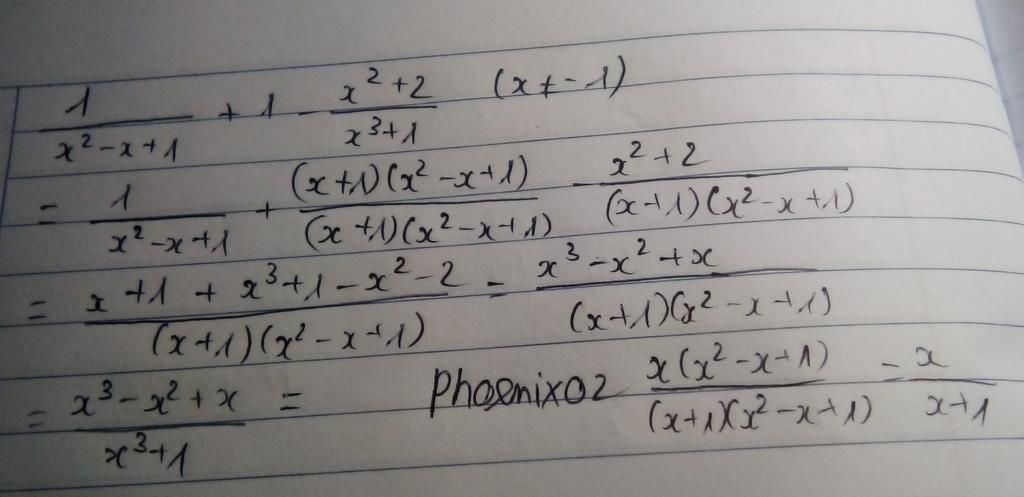 1/(x²-x+1) + 1 - (x²+2)/(x³+1) (x ≠ -1)
= 1/(x²-x+1) + (x+1)(x²-x+1)/(x+1)(x²-x+1) - (x²+2)/(x+1)(x²-x+1)
= (x+1+x³+1-x²-2)/(x+1)(x²-x+1) = (x³-x²+x)/(x+1)(x²-x+1)
= (x³-x²+x)/(x³+1) = Phoenixoz x(x²-x+1)/(x+1)(x²-x+1) = x/(x+1)